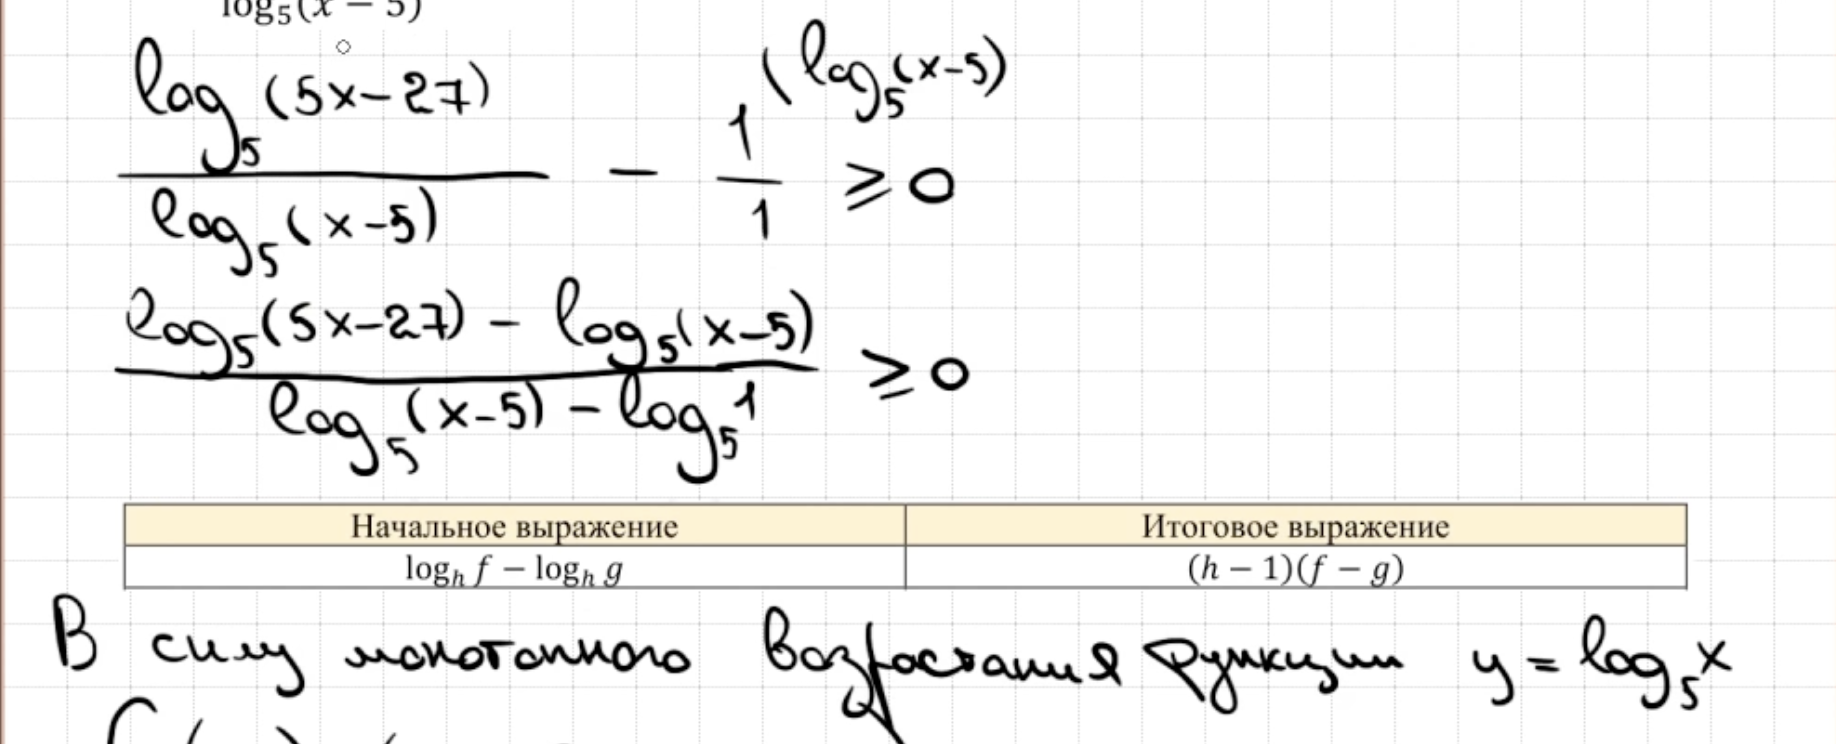 log₅(x − 5)
(log₅(x-5)
log₅(5x-27) / log₅(x-5) - 1/1 ⩾ 0
(log₅(5x-27) - log₅(x-5)) / (log₅(x-5) - log₅1) ⩾ 0
Начальное выражение Итоговое выражение
logₕ f − logₕ g (h − 1)(f − g)
В силу монотонного возрастания функции y = log₅x